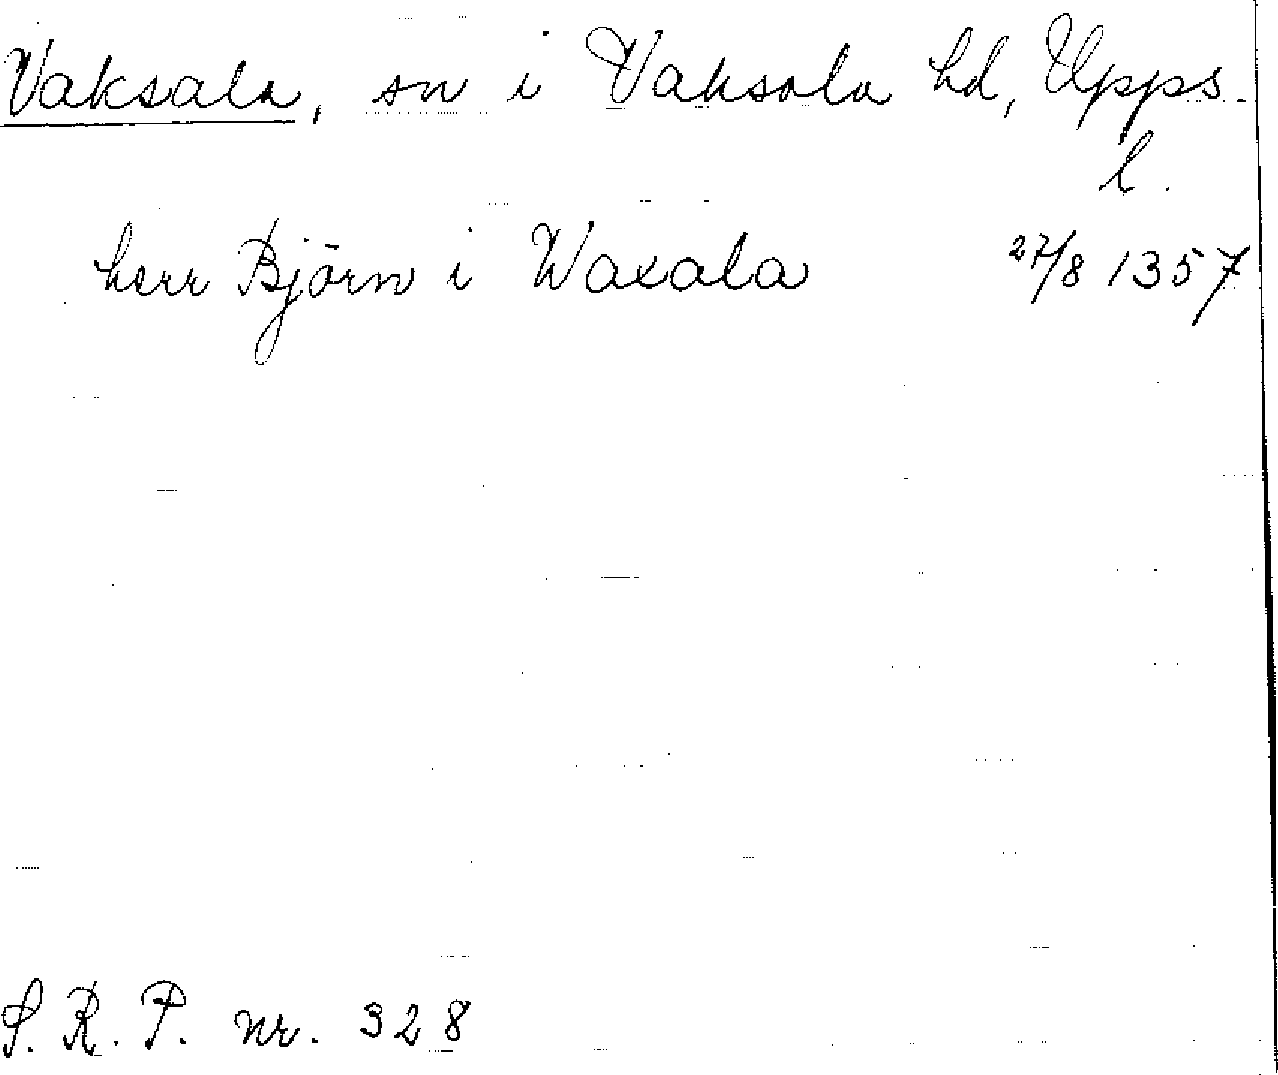 Vaksala, sn i Vaksala hd, Upps.
l.
herr Björn i Waxala 27/8 1357
S. R. P. nr. 328